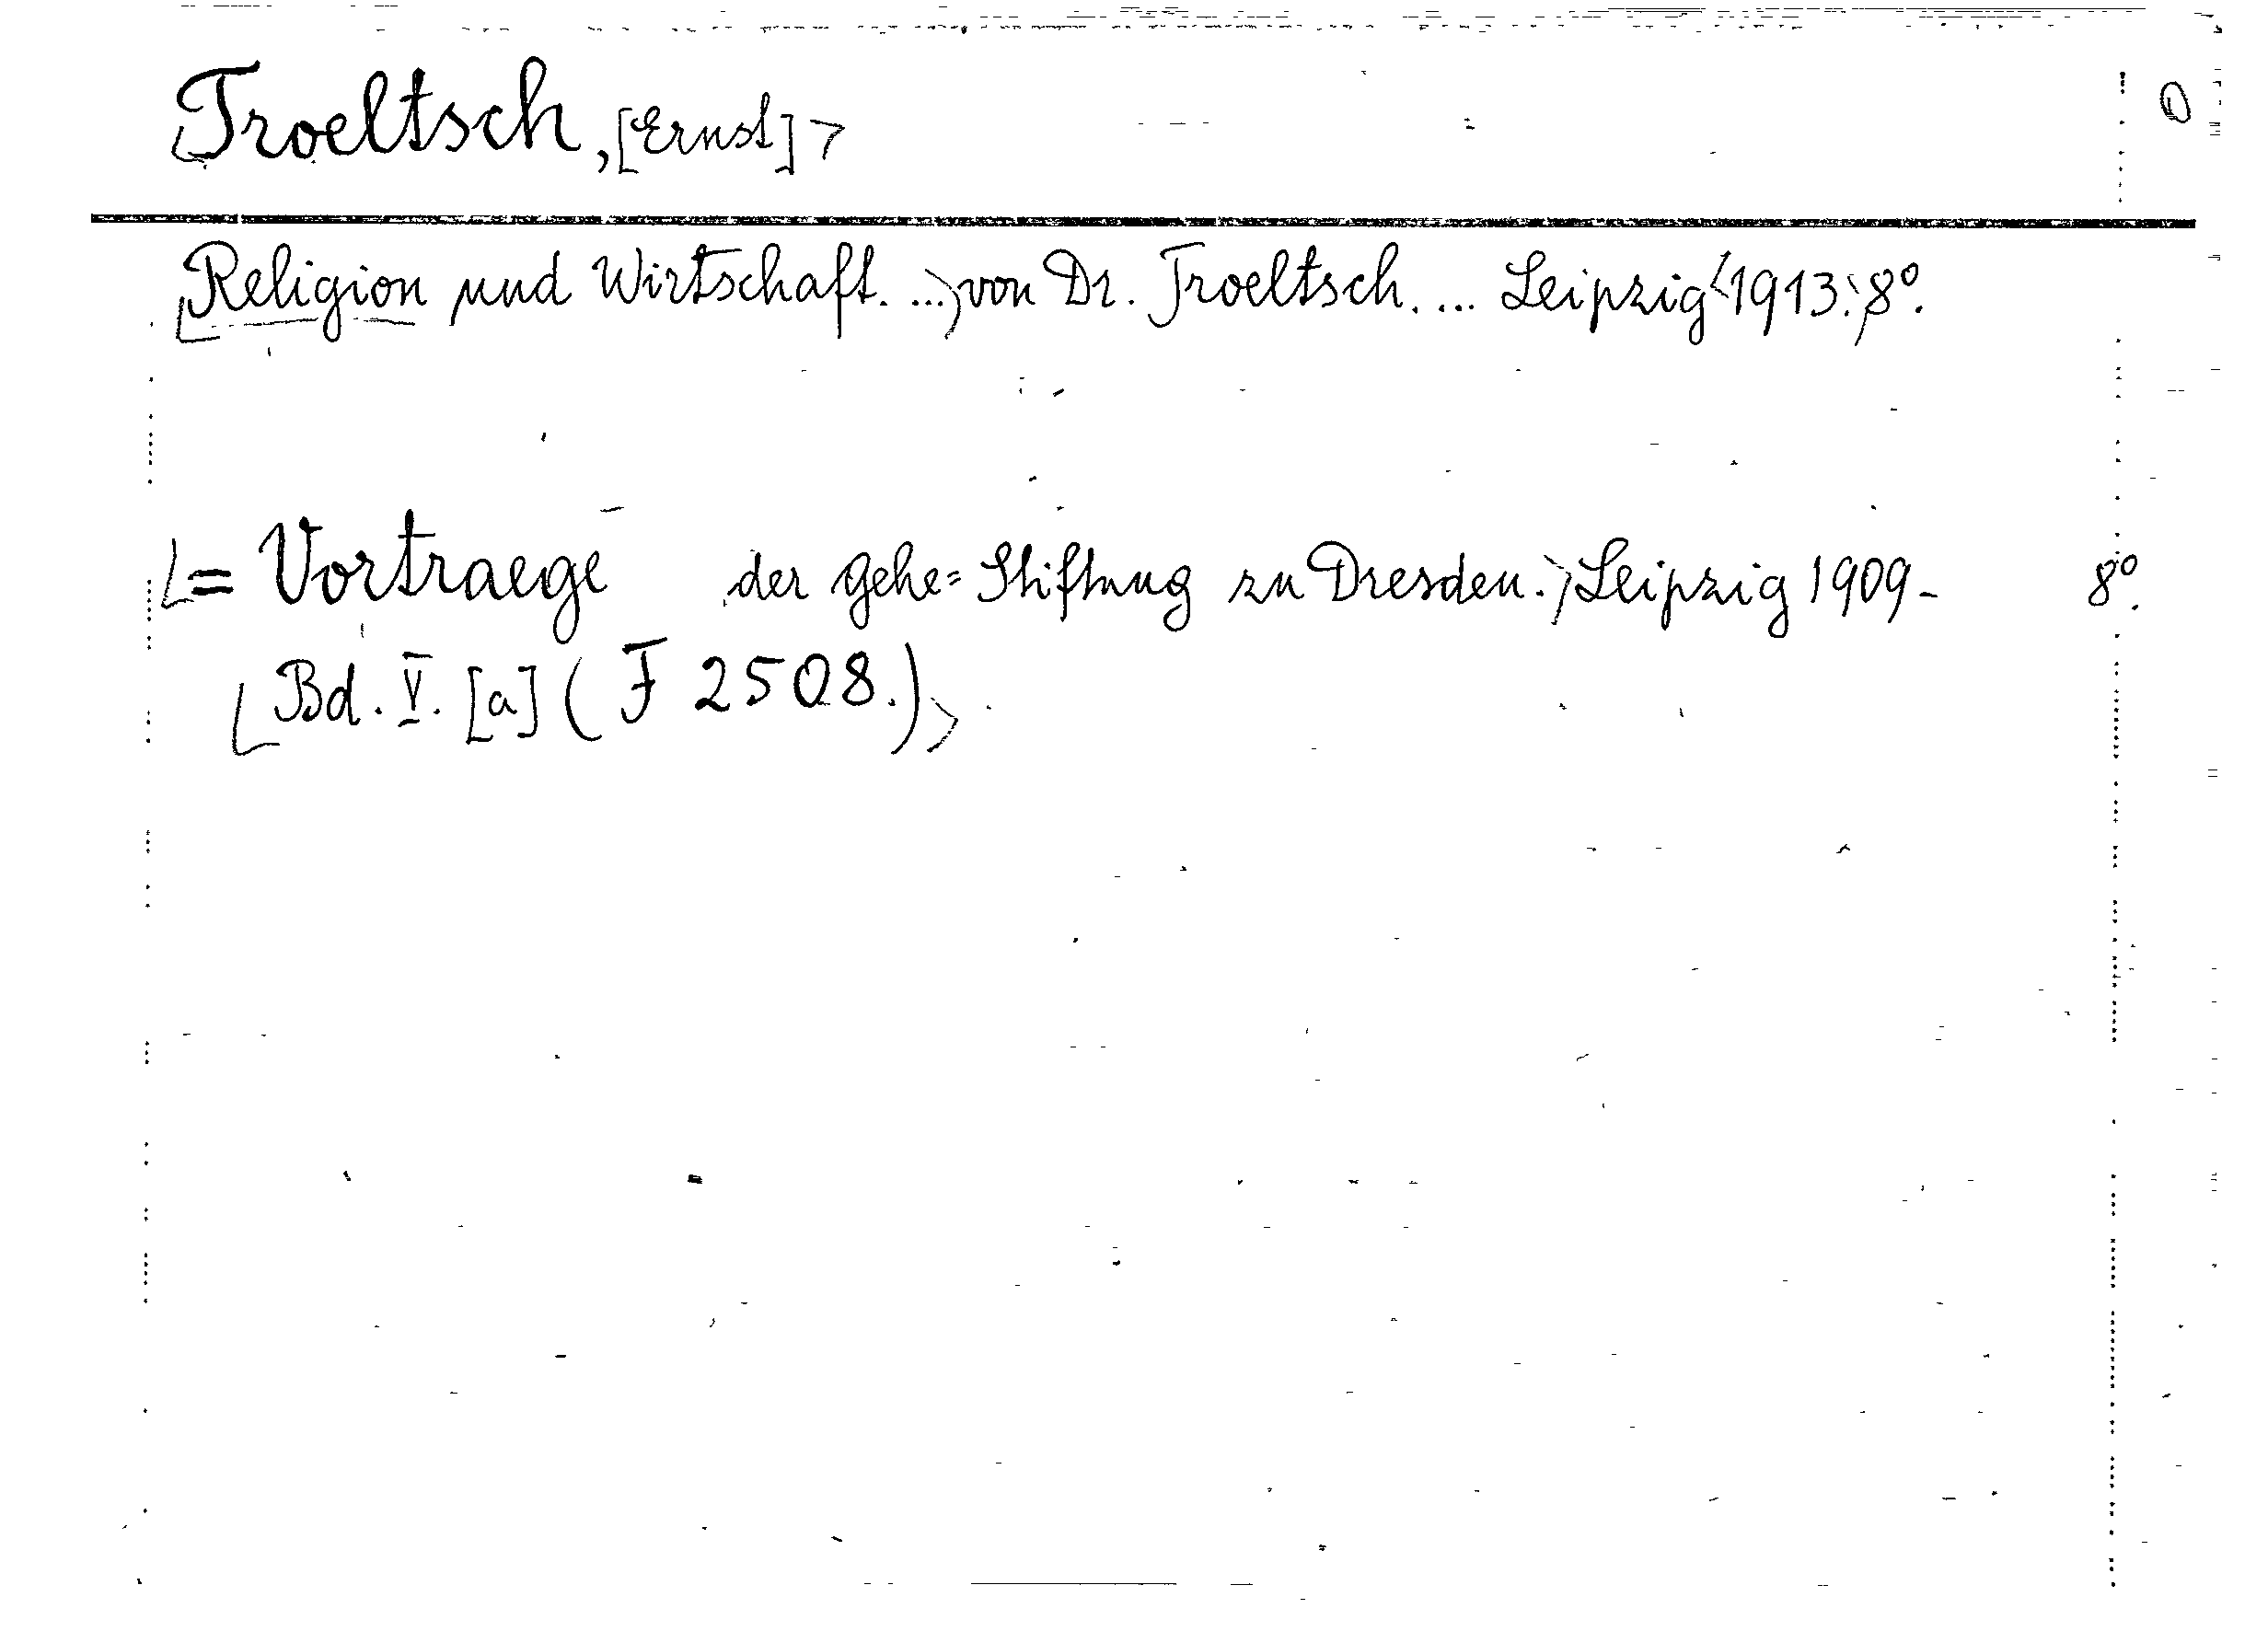 Troeltsch, [Ernst]
Religion und Wirtschaft. ... von Dr. Troeltsch. ... Leipzig 1913. 8°.
= Vortraege der Gehe=Stiftung zu Dresden. Leipzig 1909- 8°.
Bd. V. [a] (F 2508.)